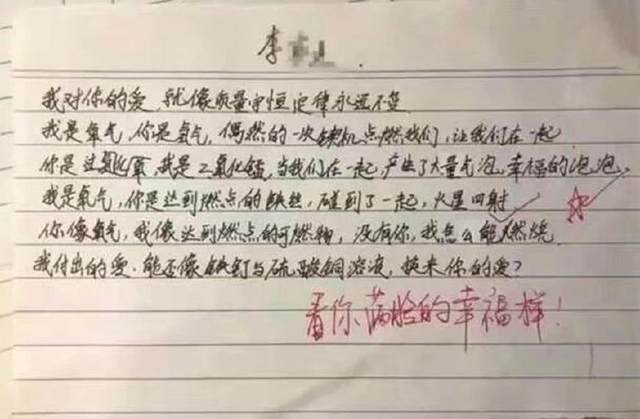 李
我对你的爱,就像质量守恒定律永远不变
我是氧气,你是氢气,偶然的一次契机点燃我们,让我们在一起.
你是过氧化氢,我是二氧化锰,当我们在一起,产生了大量气泡,幸福的泡泡,
我是氧气,你是达到燃点的铁丝,碰到了一起,火星四射
你像氧气,我像达到燃点的可燃物,没有你,我怎么能燃烧
我付出的爱.能否像铁钉与硫酸铜溶液,换来你的爱?
看你满脸的幸福样!